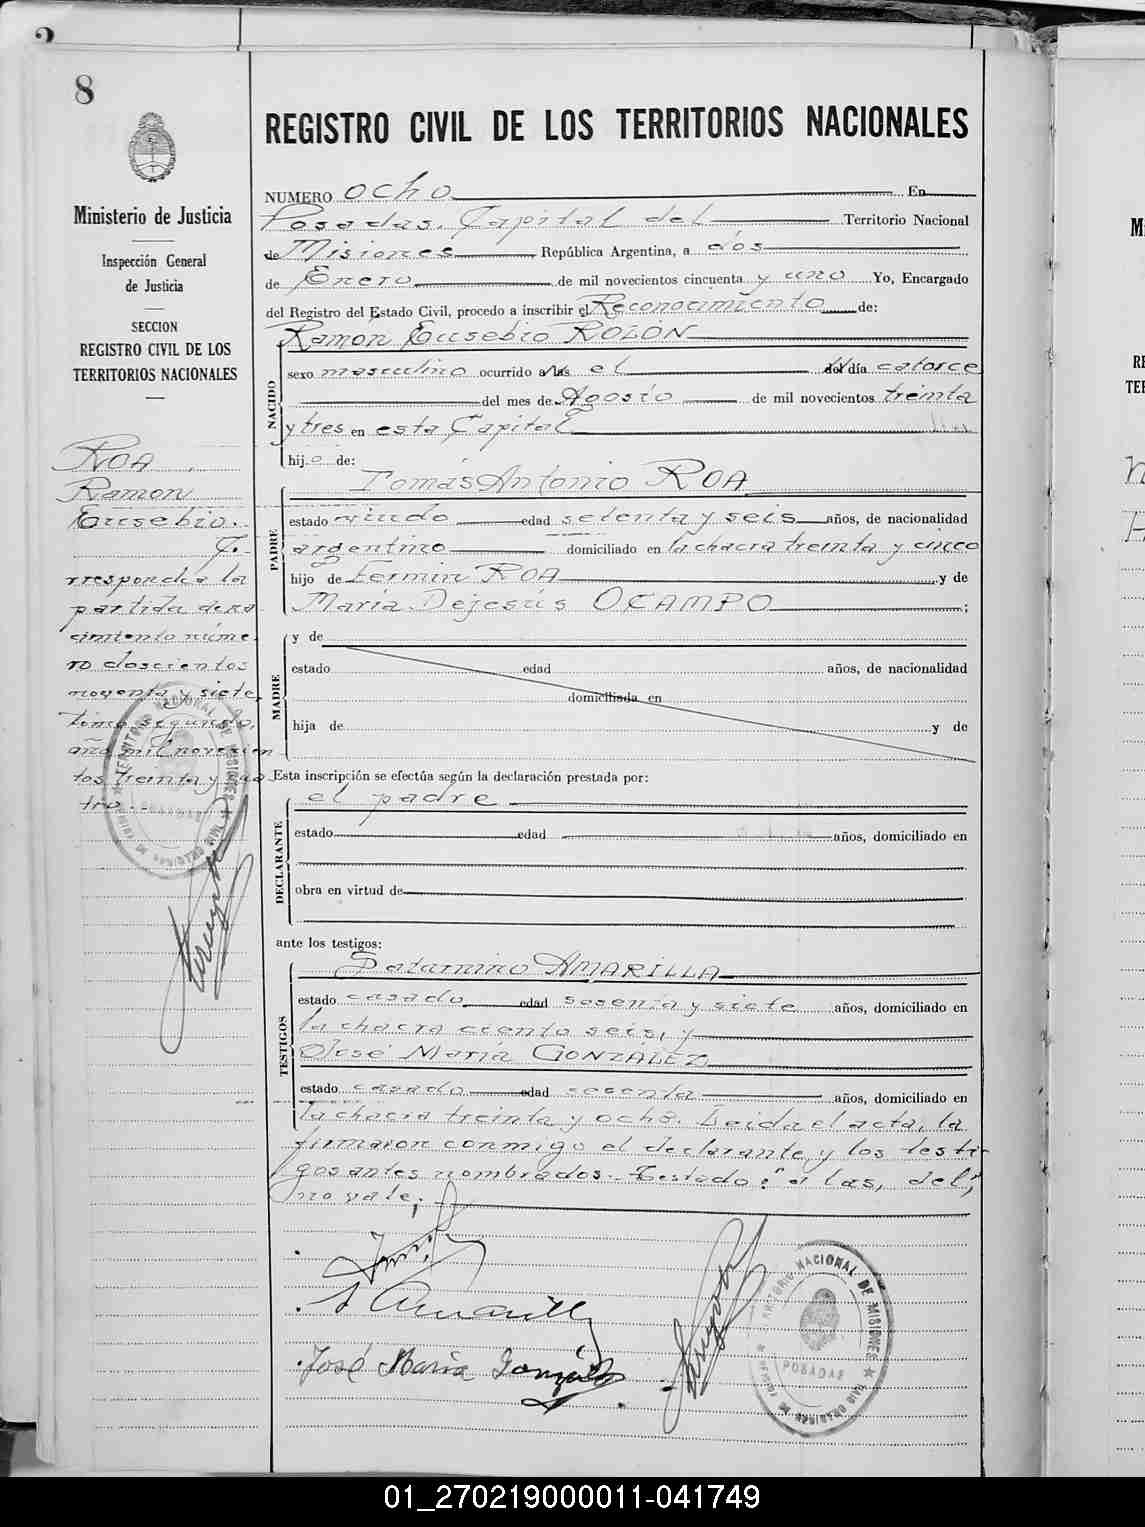 8
Ministerio de Justicia
Inspección General
de Justicia
SECCION
REGISTRO CIVIL DE LOS
TERRITORIOS NACIONALES
ROA
Ramon
Eusebio.
Co-
rresponde a la
partida de na
cimiento núme
ro doscientos
noventa y siete,
tomo segundo,
año mil novecien
tos treinta y cua
tro.
REGISTRO CIVIL DE LOS TERRITORIOS NACIONALES
NUMERO ocho En
Posadas, Capital del Territorio Nacional
de Misiones República Argentina, a dos
de Enero de mil novecientos cincuenta y uno Yo, Encargado
del Registro del Estado Civil, procedo a inscribir el Reconocimiento de:
Ramón Eusebio ROLÓN
NACIDO
sexo masculino ocurrido a las el del día catorce
del mes de Agosto de mil novecientos treinta
y tres en esta Capital
hijo de:
Tomás Antonio ROA
PADRE
estado viudo edad setenta y seis años, de nacionalidad
argentino domiciliado en la chacra treinta y cinco
hijo de Fermin ROA y de
María Dejesús OCAMPO;
MADRE
y de
estado edad años, de nacionalidad
domiciliada en
hija de y de
Esta inscripción se efectúa según la declaración prestada por:
el padre
DECLARANTE
estado edad años, domiciliado en
obra en virtud de
ante los testigos:
TESTIGOS
Saturnino AMARILLA
estado casado edad sesenta y siete años, domiciliado en
la chacra ciento seis, y
José María GONZÁLEZ
estado casado edad sesenta años, domiciliado en
la chacra treinta y ocho. Leida el acta, la
firmaron conmigo el declarante y los testi-
gos antes nombrados. Testado: "a las, del",
no vale;
S Amarilla
José María González
TERRITORIO NACIONAL DE MISIONES
POSADAS
01_270219000011-041749